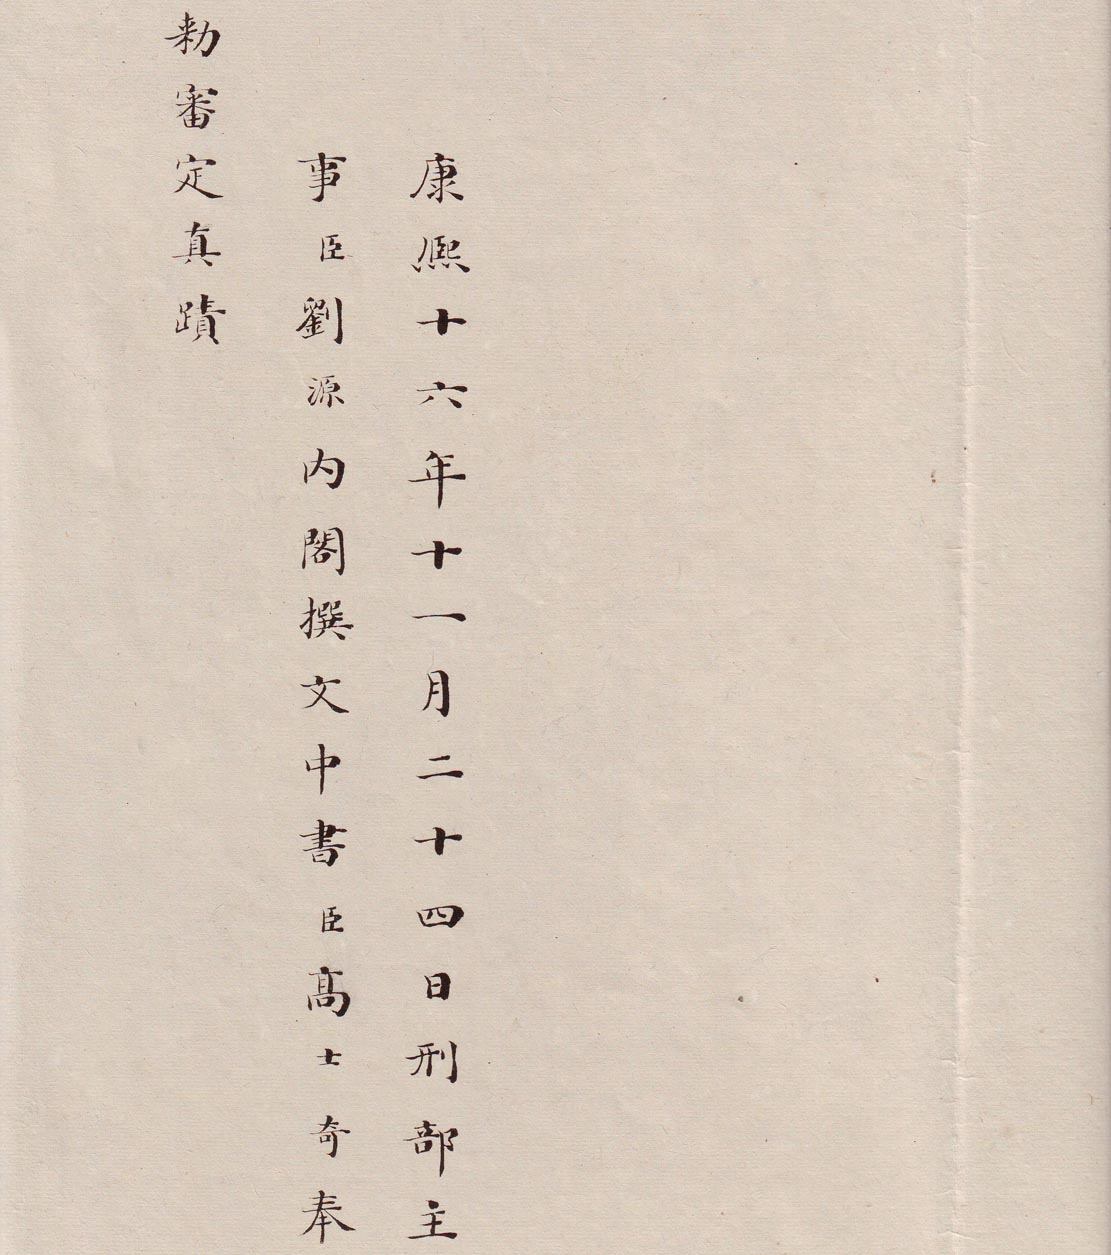 康熙十六年十一月二十四日刑部主
事臣劉源內閣撰文中書臣高士奇奉
勑審定真蹟